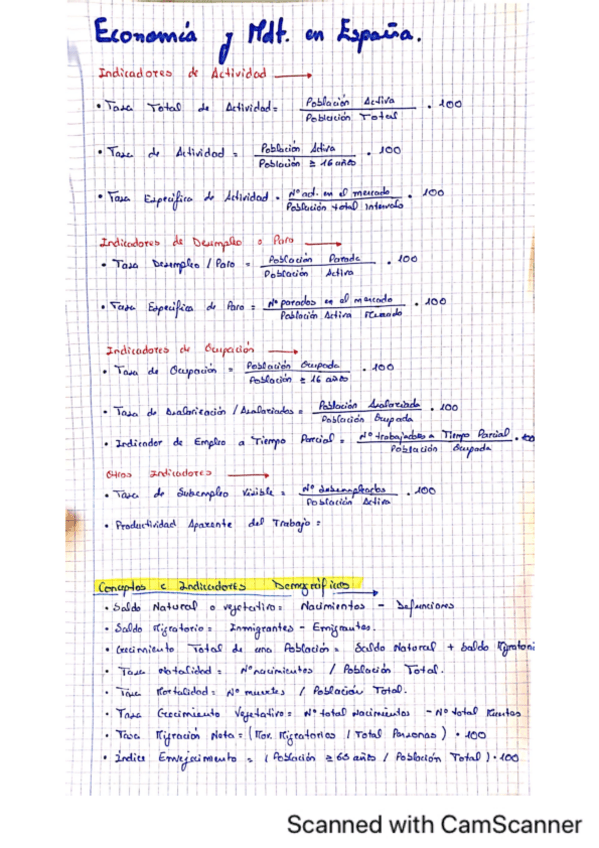 Economía y Mdt. en España.
Indicadores de Actividad →
• Tasa Total de Actividad = Población Activa / Población Total · 100
• Tasa de Actividad = Población Activa / Población ≥ 16 años · 100
• Tasa Específica de Actividad = Nº act. en el mercado / Población total intervalo · 100
Indicadores de Desempleo o Paro →
• Tasa Desempleo / Paro = Población Parada / Población Activa · 100
• Tasa Específica de Paro = Nº parados en el mercado / Población Activa · 100
Indicadores de Ocupación →
• Tasa de Ocupación = Población Ocupada / Población ≥ 16 años · 100
• Tasa de Asalarización / Asalariados = Población Asalariada / Población Ocupada · 100
• Indicador de Empleo a Tiempo Parcial = Nº trabajadores a Tiempo Parcial / Población Ocupada · 100
Otros Indicadores →
• Tasa de Subempleo Visible = Nº subempleados / Población Activa · 100
• Productividad Aparente del Trabajo =
Conceptos e Indicadores Demográficos
• Saldo Natural o vegetativo = Nacimientos - Defunciones
• Saldo Migratorio = Inmigrantes - Emigrantes.
• Crecimiento Total de una Población = Saldo Natural + Saldo Migratori
• Tasa Natalidad = Nº nacimientos / Población Total.
• Tasa Mortalidad = Nº muertes / Población Total.
• Tasa Crecimiento Vegetativo = Nº total Nacimientos - Nº total Muertes
• Tasa Migración Neta = (Mov. Migratorios / Total Personas) · 100
• Índice Envejecimiento = (Población ≥ 65 años / Población Total) · 100
Scanned with CamScanner